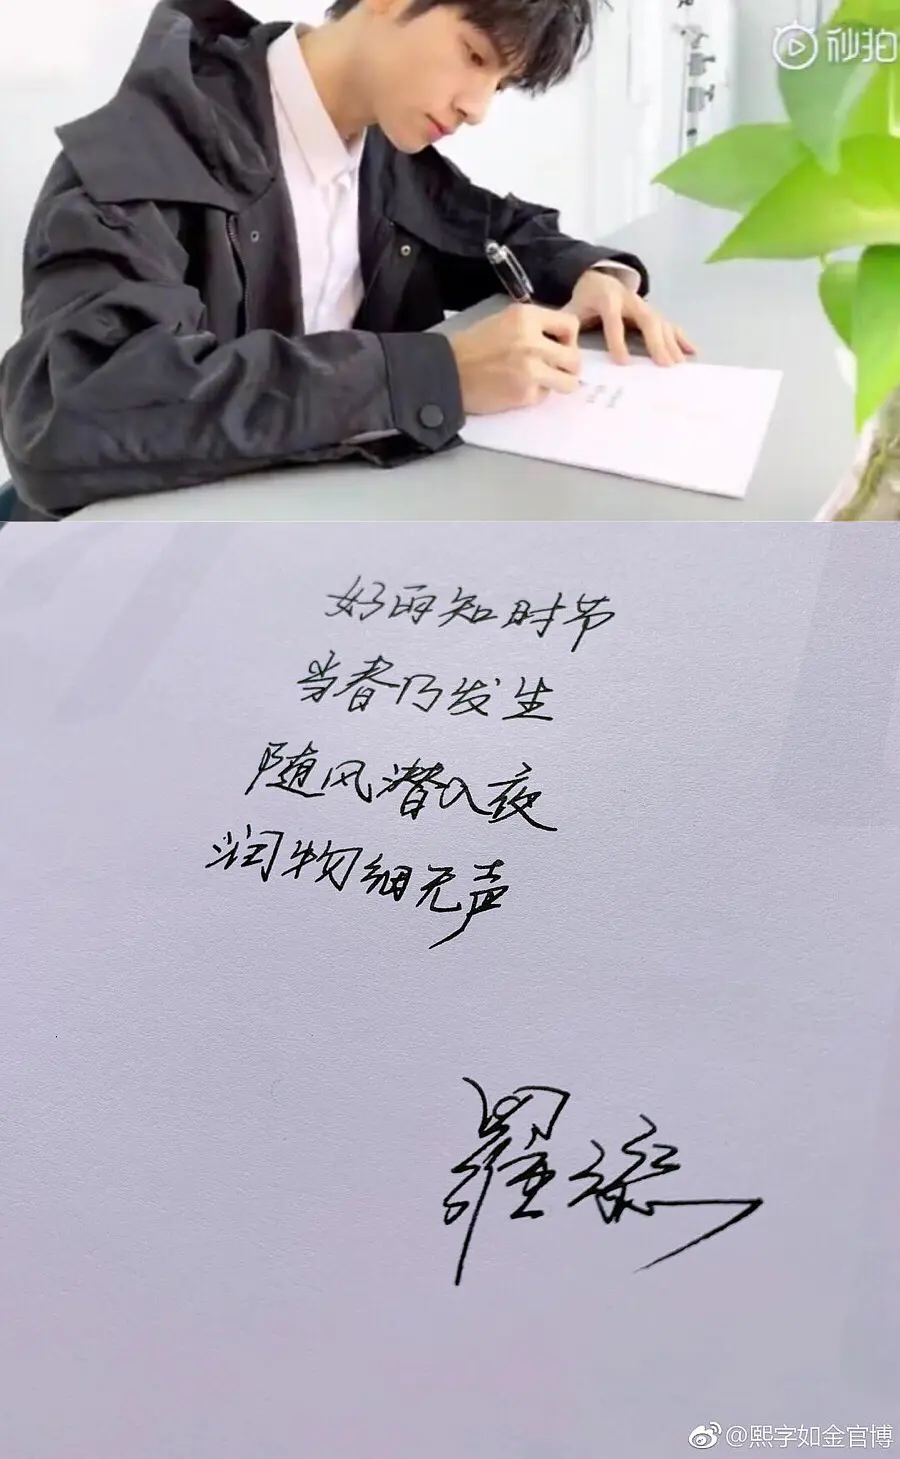 秒拍
好雨知时节
当春乃发生
随风潜入夜
润物细无声
@熙字如金官博